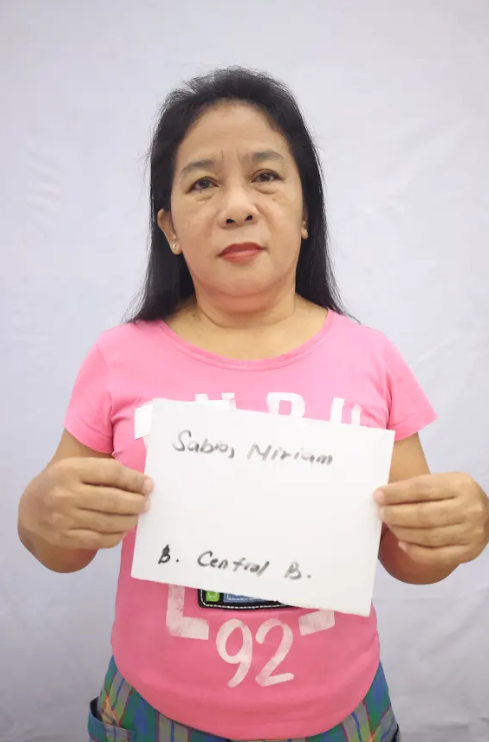 Sabio, Miriam
B. Central B.
92